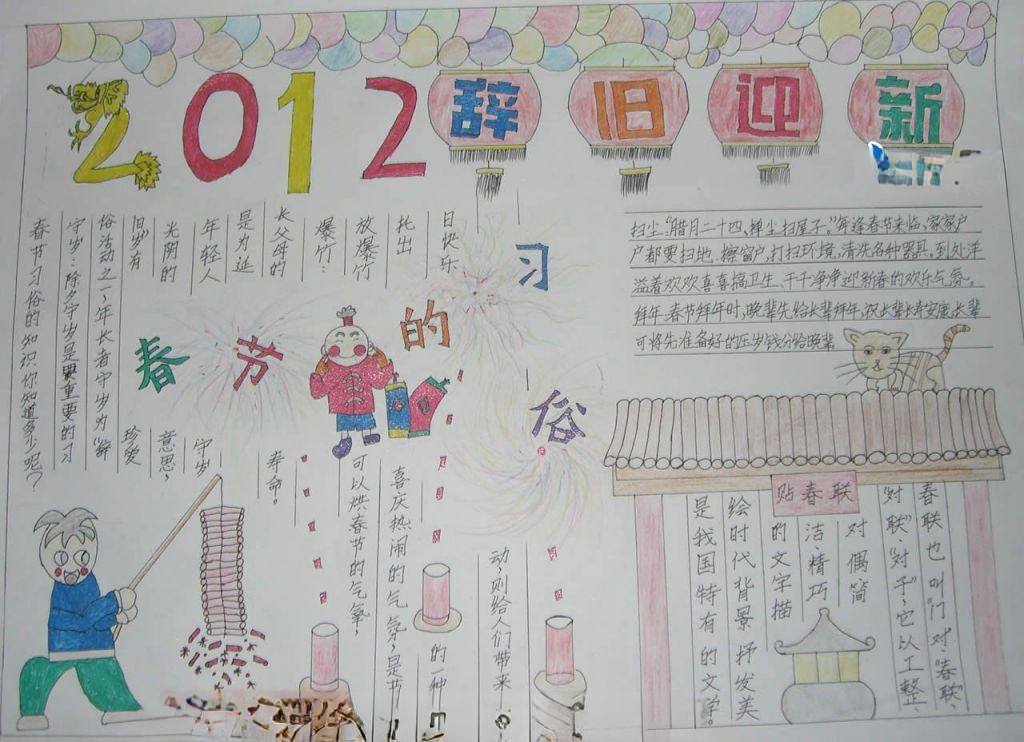 2012 辞旧迎新
春节的习俗
春节习俗的知识你知道多少呢？
守岁：除夕守岁是最重要的习
俗活动之一，年长者守岁为“辞
旧岁”有
珍爱
光阴的
意思，
是为延
守岁
年轻人
长父母的
寿命。
爆竹：
放爆竹
可以烘春节的气氛，
托出
喜庆热闹的气氛，是节
日快乐
的一种
动，则给人们带来
扫尘：“腊月二十四，掸尘扫屋子。”每逢春节来临，家家户
户都要扫地、擦窗户，打扫环境，清洗各种器具。到处洋
溢着欢欢喜喜搞卫生、干干净净迎新春的欢乐气氛。
拜年：春节拜年时，晚辈先给长辈拜年，祝长辈长寿安康，长辈
可将先准备好的压岁钱分给晚辈
贴春联
春联也叫“门对”“春联”、
“对联”、“对子”，它以工整、
对偶、简
洁、精巧
的文字描
绘时代背景抒发美
是我国特有的文学。